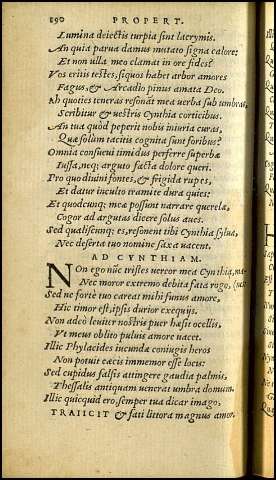 190 PROPERT.
Lumina deiectis turpia sint lacrymis.
An quia parua damus mutato signa calore:
Et non ulla meo clamat in ore fides?
Vos eritis testes, siquos habet arbor amores
Fagus, & Arcadio pinus amata Deo.
Ah quoties teneras resonāt mea uerba sub umbras,
Scribitur & uestris Cynthia corticibus.
An tua quòd peperit nobis iniuria curas,
Quæ solùm tacitis cognita sunt foribus?
Omnia consueui timidus perferre superbæ
Iussa, neq; arguto facta dolore queri.
Pro quo diuini fontes, & frigida rupes,
Et datur inculto tramite dura quies:
Et quodcunq; meæ possunt narrare querelæ,
Cogor ad argutas dicere solus aues.
Sed qualiscunq; es, resonent tibi Cynthia syluæ,
Nec deserta tuo nomine saxa uacent.
AD CYNTHIAM.
NOn ego nūc tristes uereor mea Cynthia, ma-
Nec moror extremo debita fata rogo, (nes:
Sed ne fortè tuo careat mihi funus amore,
Hic timor est ipsis durior exequijs.
Non adeò leuiter nostris puer hæsit ocellis,
Vt meus oblito puluis amore uacet.
Illic Phylacides iucundæ coniugis heros
Non potuit cæcis immemor esse locis:
Sed cupidus falsis attingere gaudia palmis,
Thessalis antiquam uenerat umbra domum.
Illic quicquid ero, semper tua dicar imago,
TRAIICIT & fati littora magnus amor.